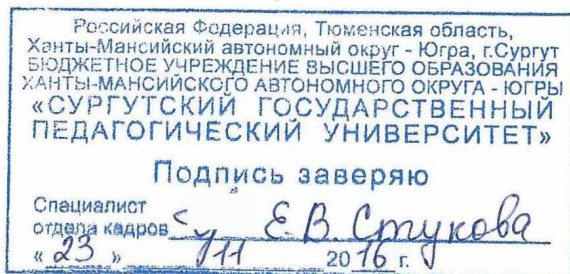 Российская Федерация, Тюменская область,
Ханты-Мансийский автономный округ - Югра, г.Сургут
БЮДЖЕТНОЕ УЧРЕЖДЕНИЕ ВЫСШЕГО ОБРАЗОВАНИЯ
ХАНТЫ-МАНСИЙСКОГО АВТОНОМНОГО ОКРУГА - ЮГРЫ
«СУРГУТСКИЙ ГОСУДАРСТВЕННЫЙ
ПЕДАГОГИЧЕСКИЙ УНИВЕРСИТЕТ»
Подпись заверяю
Специалист
отдела кадров Е.В. Стукова
« 23 » 2016 г.